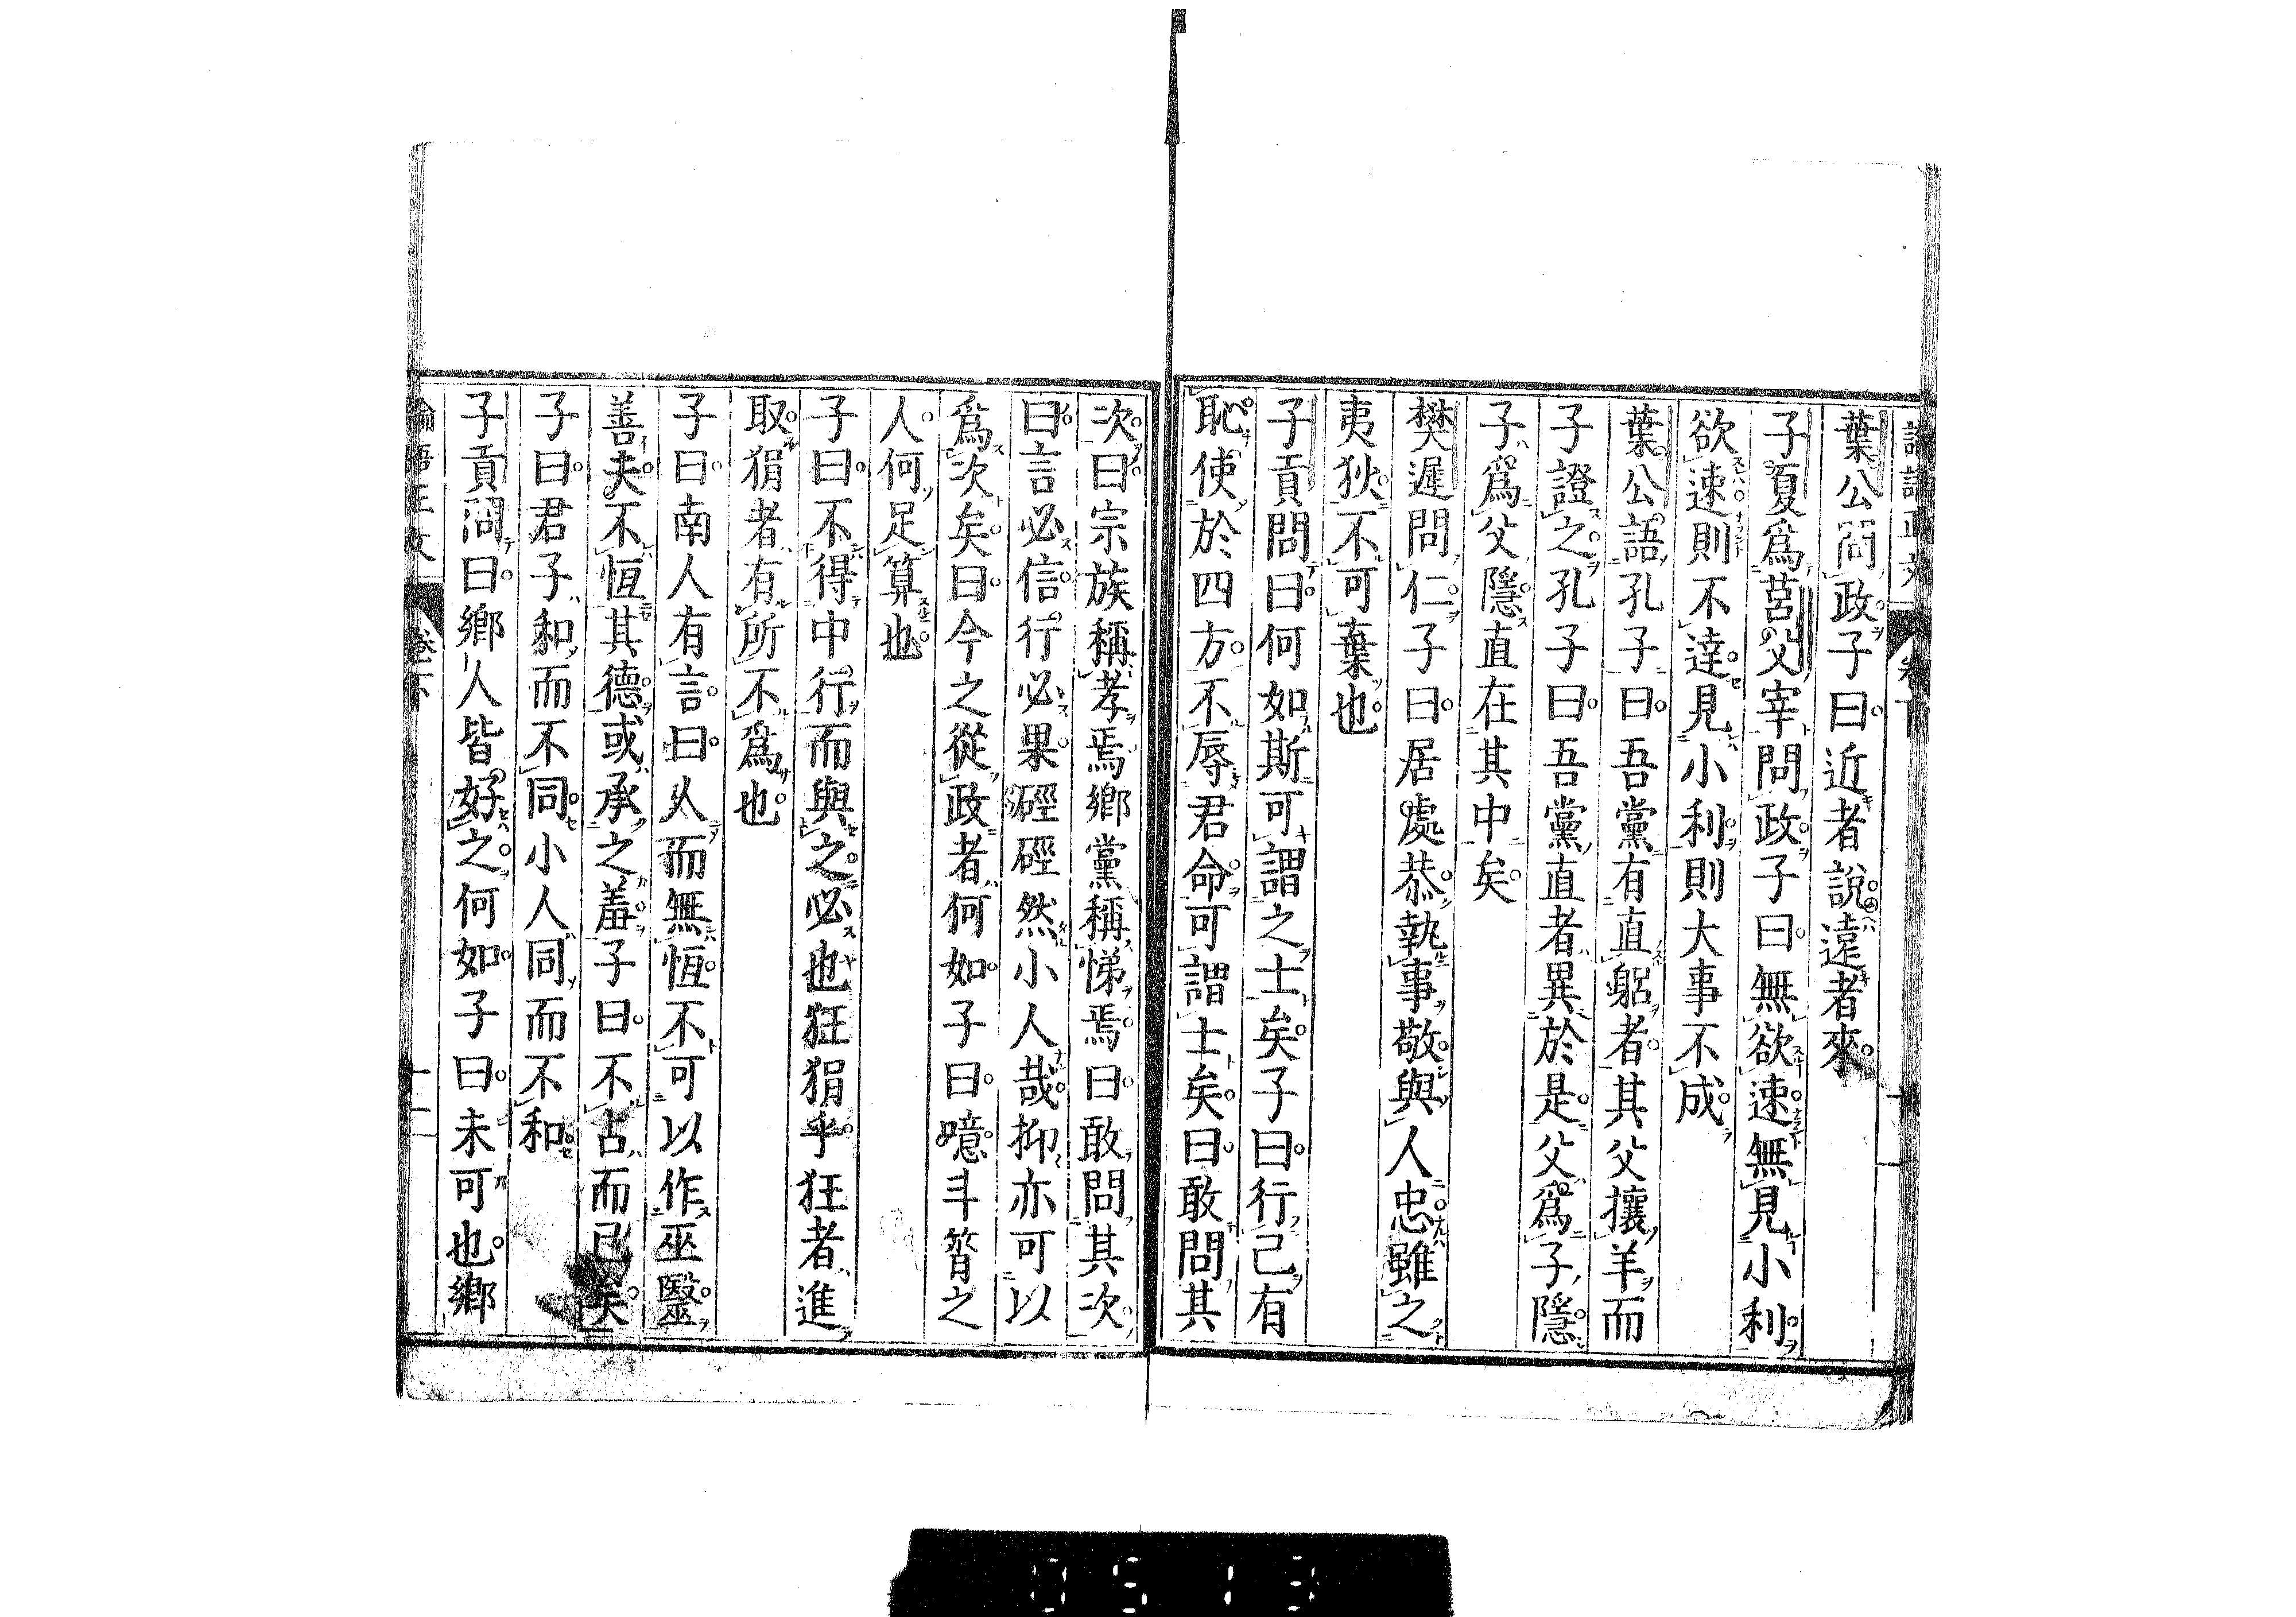 葉公問政子曰近者說遠者來
子夏爲莒父宰問政子曰無欲速無見小利
欲速則不達見小利則大事不成
葉公語孔子曰吾黨有直躬者其父攘羊而
子證之孔子曰吾黨直者異於是父爲子隱
子爲父隱直在其中矣
樊遲問仁子曰居處恭執事敬與人忠雖之
夷狄不可棄也
子貢問曰何如斯可謂之士矣子曰行己有
恥使於四方不辱君命可謂士矣曰敢問其
次曰宗族稱孝焉鄉黨稱悌焉曰敢問其次
曰言必信行必果硜硜然小人哉抑亦可以
爲次矣曰今之從政者何如子曰噫斗筲之
人何足算也
子曰不得中行而與之必也狂狷乎狂者進
取狷者有所不爲也
子曰南人有言曰人而無恆不可以作巫醫
善夫不恆其德或承之羞子曰不占而已矣
子曰君子和而不同小人同而不和
子貢問曰鄉人皆好之何如子曰未可也鄉
論語正文 卷下 十二
0513